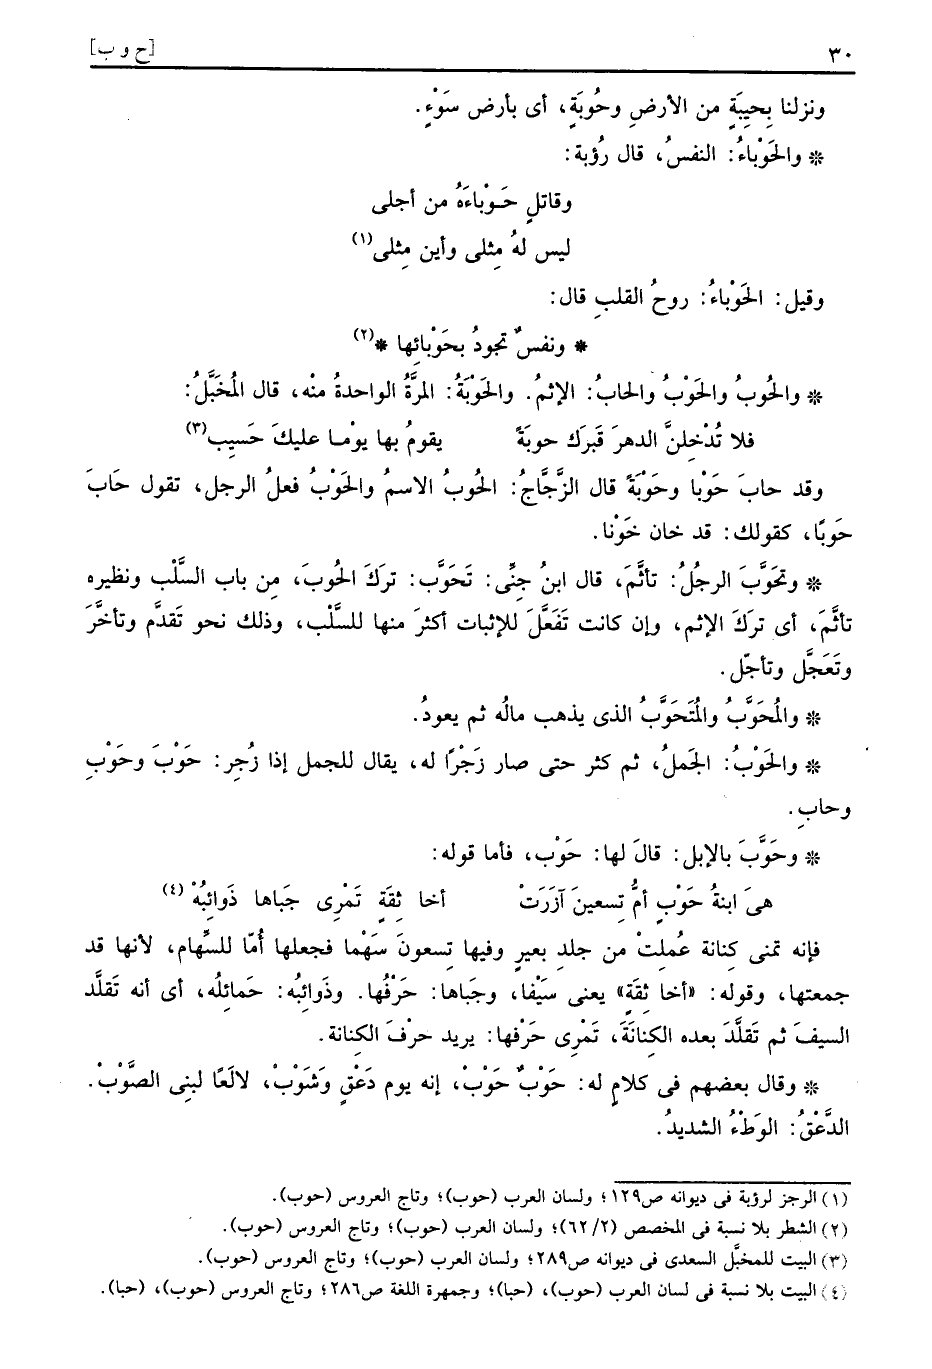 ٣٠
[ح و ب]
ونزلنا بِحِيبَةٍ من الأرضِ وحُوبَةٍ، أى بأرض سَوْءٍ.
* والحَوْباءُ: النفسُ، قال رُؤبة:
وقاتلٍ حَـوْباءَهُ من أجلى
ليس لهُ مِثلى وأين مِثلى(١)
وقيل: الحَوْباءُ: روحُ القلبِ قال:
* ونفسٌ تجودُ بحَوْبائِها *(٢)
* والحُوبُ والحَوْبُ والحابُ: الإثمُ. والحَوْبَةُ: المرَّةُ الواحدةُ منْه، قال المُخَبَّلُ:
فلا تُدْخلِنَّ الدهرَ قَبرَك حوبَةً يقومُ بها يوْمـا عليكَ حَسِيب(٣)
وقد حابَ حَوْبا وحَوْبَةً قال الزَّجَّاجُ: الحُوبُ الاسمُ والحَوْبُ فعلُ الرجل، تقول حَابَ
حَوبًا، كقولك: قد خان خَوْنا.
* وتحَوَّبَ الرجلُ: تأثَّمَ، قال ابنُ جنِّى: تَحَوَّب: ترَكَ الحُوبَ، مِن باب السَّلْب ونظيره
تأثَّمَ، أى تركَ الإثم، وإن كانت تَفَعَّلَ للإثبات أكثرَ منها للسَّلْب، وذلك نحو تَقدَّم وتأخَّرَ
وتَعَجَّل وتأجّل.
* والمُحَوَّبُ والمُتَحَوَّبُ الذى يذهب مالُه ثم يعودُ.
* والحَوْبُ: الجَملُ، ثم كثر حتى صار زَجْرًا له، يقال للجمل إذا زُجِر: حَوْبَ وحَوْبِ
وحابِ.
* وحَوَّبَ بالإبل: قالَ لها: حَوْب، فأما قوله:
هىَ ابنةُ حَوْبٍ أمُّ تسعينَ آزَرَتْ أخا ثِقَةٍ تَمْرِى جَباها ذَوائبُهْ (٤)
فإنه تمنى كنانة عُملتْ من جلد بعيرٍ وفيها تسعونَ سَهْما فجعلها أُمّا للسِّهام، لأنها قد
جمعتها، وقوله: «أخا ثقَةٍ» يعنى سَيْفا، وجَباها: حَرْفُها. وذَوائبُه: حَمائلُه، أى أنه تَقلَّد
السيفَ ثم تَقلَّدَ بعده الكِنانَةَ، تَمْرِى حَرْفها: يريد حرْفَ الكنانة.
* وقال بعضهم فى كلامٍ له: حَوْبٌ حَوْبْ، إنه يوم دَعْقٍ وشَوْبْ، لالَعًا لبنى الصَّوْبْ.
الدَّعْقُ: الوَطْءُ الشديدُ.
(١) الرجز لرؤبة فى ديوانه ص١٢٩؛ ولسان العرب (حوب)؛ وتاج العروس (حوب).
(٢) الشطر بلا نسبة فى المخصص (٢/ ٦٢)؛ ولسان العرب (حوب)؛ وتاج العروس (حوب).
(٣) البيت للمخبَّل السعدى فى ديوانه ص٢٨٩؛ ولسان العرب (حوب)؛ وتاج العروس (حوب).
(٤) البيت بلا نسبة فى لسان العرب (حوب)، (حبا)؛ وجمهرة اللغة ص٢٨٦؛ وتاج العروس (حوب)، (حبا).